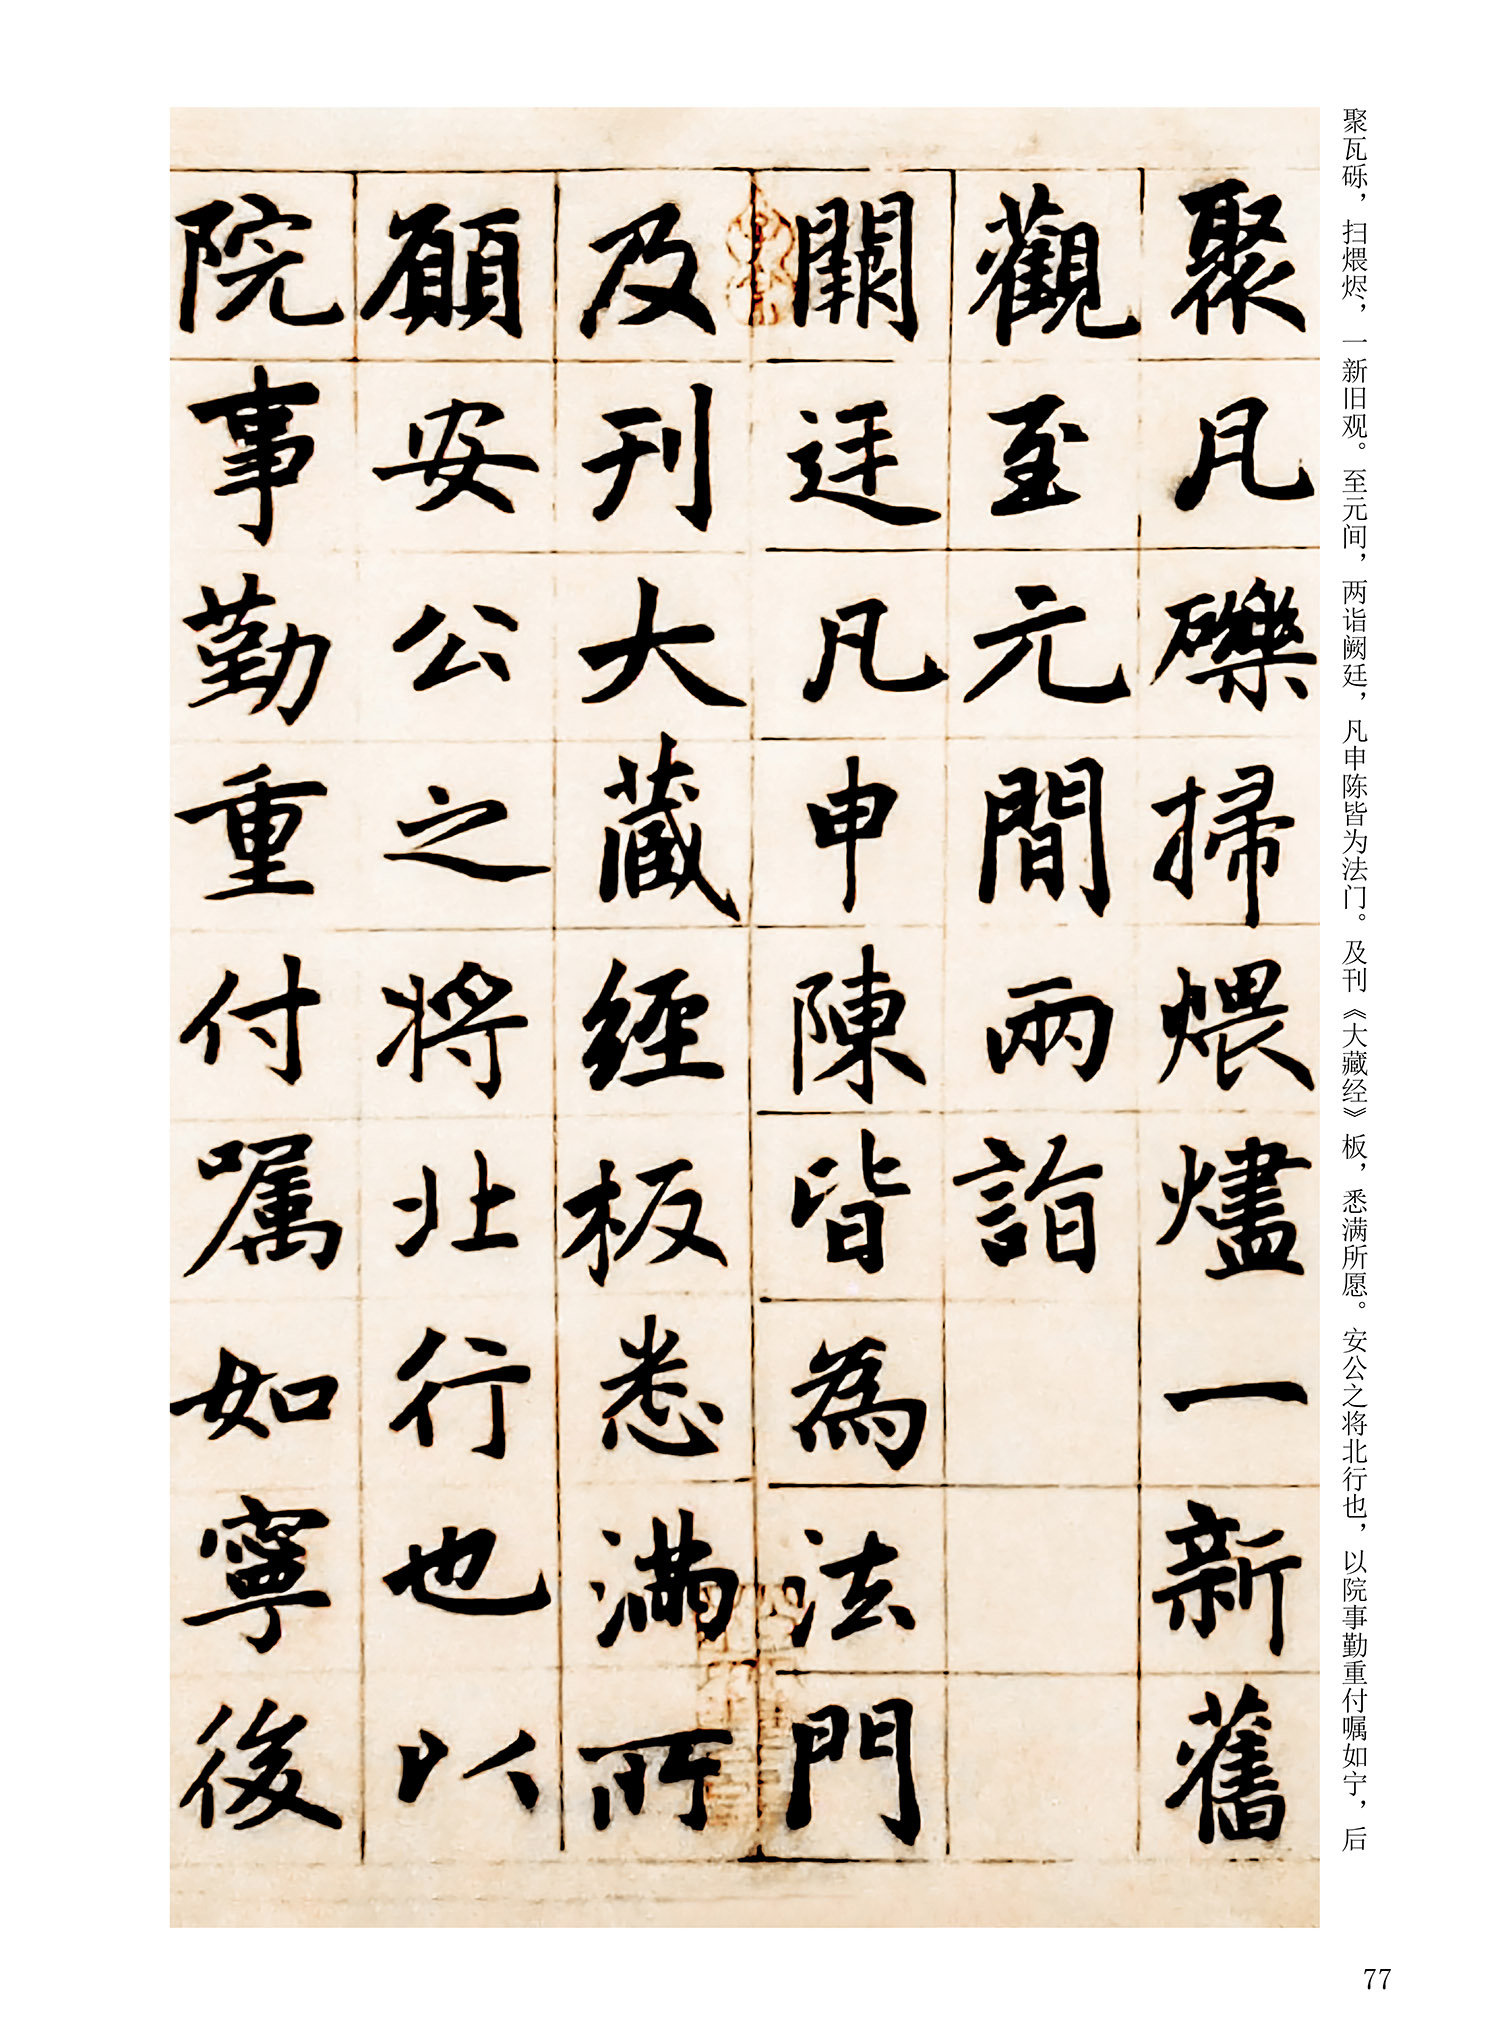 聚瓦砾，扫煨烬，一新旧观。至元间，两诣阙廷，凡申陈皆为法门。及刊《大藏经》板，悉满所愿。安公之将北行也，以院事勤重付嘱如宁，后
聚瓦礫掃煨燼一新舊
觀至元間兩詣
闕廷凡申陳皆為法門
及刊大藏經板悉滿所
願安公之將北行也以
院事勤重付囑如寧後
77